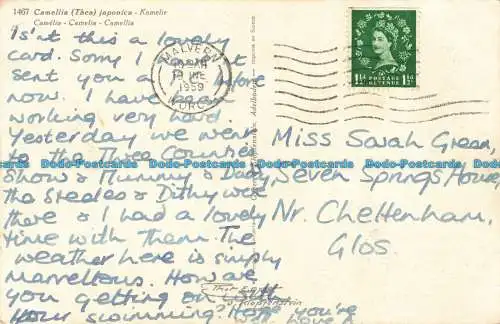 1467 Camellia (Thea) japonica - Kamelie
Camélia - Camelia - Camellia
Isn't this a lovely
card. Sorry I
sent you a before
now. I have been
working very hard.
Yesterday we went
to the Three Counties
Show & Mummy & Daddy,
the Steales & Dithy was
there & I had a lovely
time with them. The
weather here is simply
marvellous. How are
you getting on with
your swimming? Hope you're
well. Have a
MALVERN
JNE
1959
WORCS
1½d POSTAGE REVENUE 1½d
Miss Sarah Green,
Seven Springs House,
Nr. Cheltenham,
Glos.
Dodo-Postcards Dodo-Postcards Dodo-Postcards Dodo-Postcards Dodo-Postcards